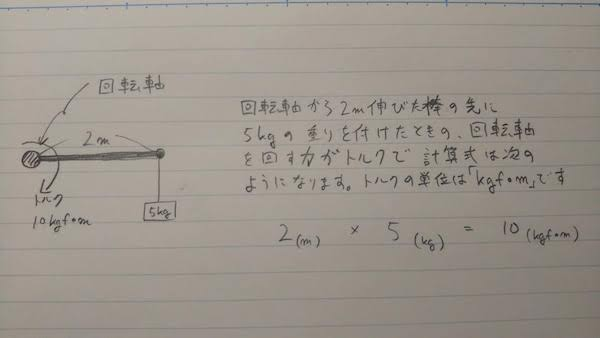 回転軸
2m
トルク
10kgf・m
5kg
回転軸から2m伸びた棒の先に
5kgの重りを付けたともの、回転軸
を回す力がトルクで計算式は次の
ようになります。トルクの単位は「kgf・m」です
2(m) × 5(kg) = 10(kgf・m)